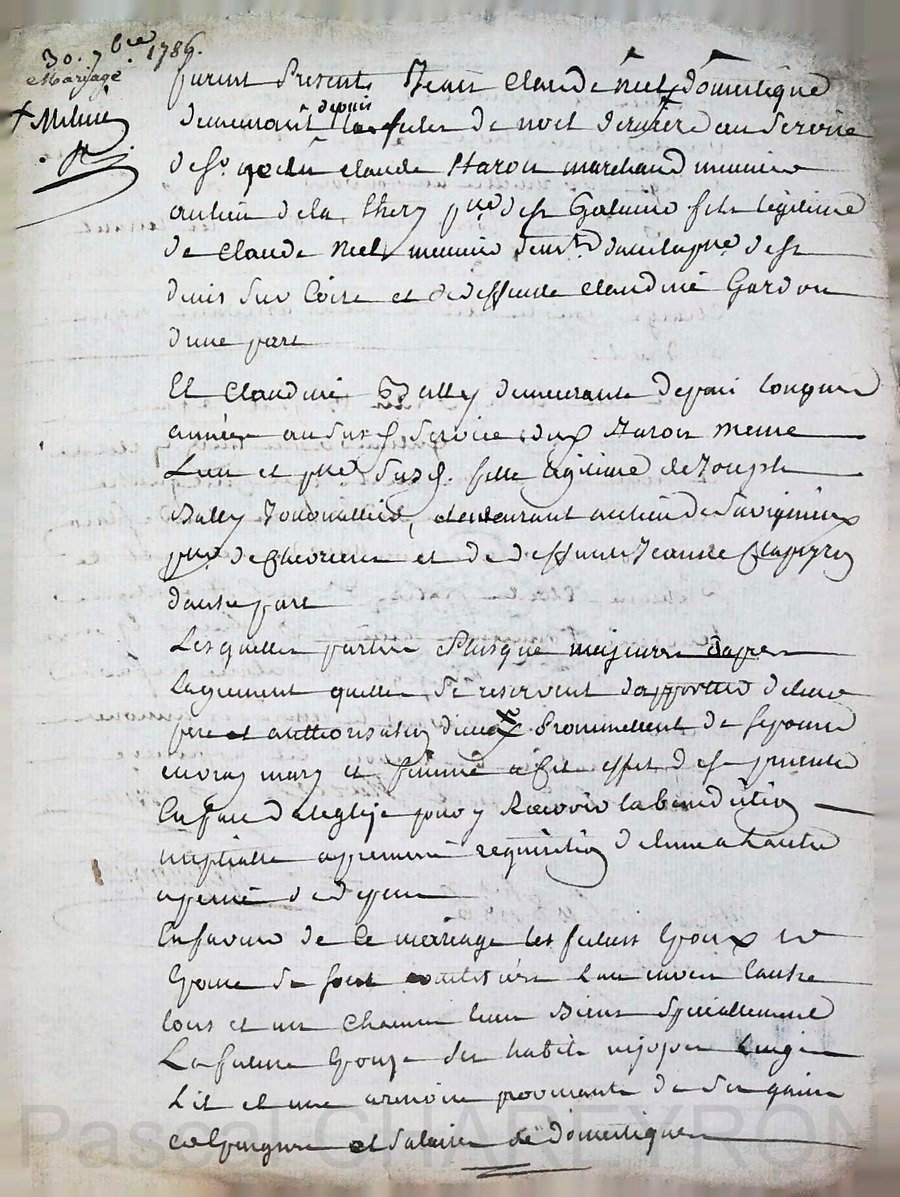 30. 7bre 1786.
Mariage
furent Presents Jean Claude Neel domestique
demeurant depuis les fetes de noel derniere au service
de sr Claude Haron marchand meunier
au lieu de la Thery psse de st Galmier fils légitime
de Claude Neel meunier demt dans la psse de st
denis sur Coise et de deffunte Claudine Gardon
d'une part
Et Claudine Bally demeurante depuis longues
années au susd service dud Haron meme
Lieu et psse susd. fille légitime de Joseph
Bally Journallier, demeurant au lieu de Savigneux
psse de et de deffunte Jeanne Clapeyron
d'autre part
Lesquelles parties Plusque majeures
lagrement quelles se reservent d'apporter de leur
pere et authorisation Promettent de sepouser
en vray mary et femme a cet effet de se presenter
en face d'eglise pour y Recevoir la benediction
nuptialle a premiere requisition de l'une a l'autre
a peine de depens
En faveur de ce mariage les futurs Epoux et
Epouse se sont constitués l'un envers l'autre
tous et un chacun leurs Biens specialement
La future Epouse ses habits linge
Lit et une armoire provenants de ses gains
et salaires de domestique
Pascal CHAREYRON